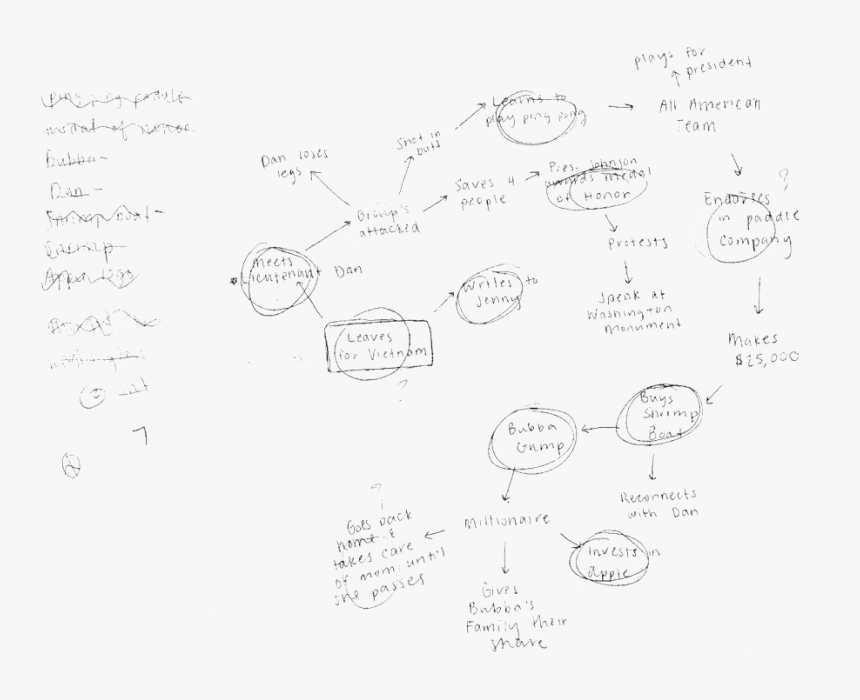 plays for
president
Learns to
play ping pong
All American
Team
Shot in
butt
Dan loses
legs
Bubba -
Dan -
Saves 4
people
Pres. Johnson
awards medal
of Honor
?
Endorses
in paddle
company
Group's
attacked
Protests
meets
Lieutenant Dan
Writes to
Jenny
Speak at
Washington
Monument
Leaves
for Vietnam
?
Makes
$25,000
Buys
Shrimp
Boat
7
Bubba
Gump
Reconnects
with Dan
?
Goes back
home &
takes care
of mom until
she passes
Millionaire
Invests in
apple
Gives
Bubba's
Family their
share